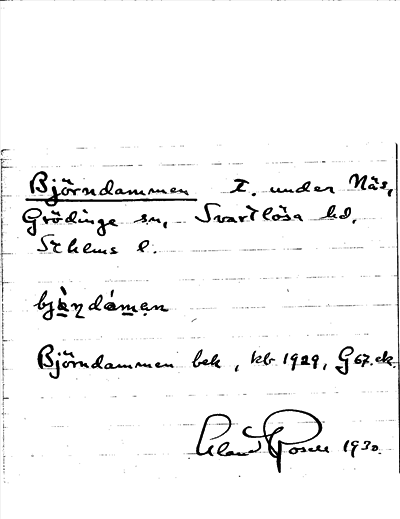 Björndammen t. under Näs,
Grödinge sn, Svartlösa hd,
Sthlms l.
bjɑ̀̈ṇdámən
Björndammen bek, kb 1929, G 67. ek.
1930.